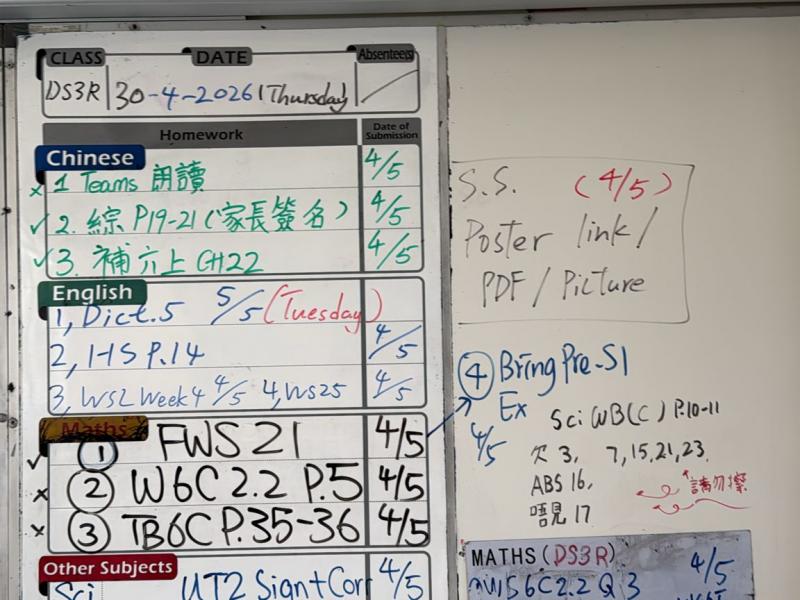 CLASS DATE Absentee(s)
DS3R 30-4-2026 (Thursday)
Homework Date of Submission
Chinese
1 Teams 朗讀 4/5
2. 綜 P19-21 (家長簽名) 4/5
3. 補六上 CH22 4/5
English
1, Dict.5 5/5 (Tuesday)
2, HS P.14 4/5
3, WS2 Week4 4/5 4, WS25 4/5
Maths
① FWS 21 4/5
② W6C 2.2 P.5 4/5
③ TB6C P.35-36 4/5
Other Subjects
Sci UT2 Sign+Corr 4/5
S.S. (4/5)
Poster link/
PDF/Picture
④ Bring Pre-S1
Ex
4/5
Sci WB(C) P.10-11
欠 3, 7,15,21,23,
ABS 16,
唔見 17
*請勿擦
MATHS (DS3R) 4/5
6C2.2 Q3